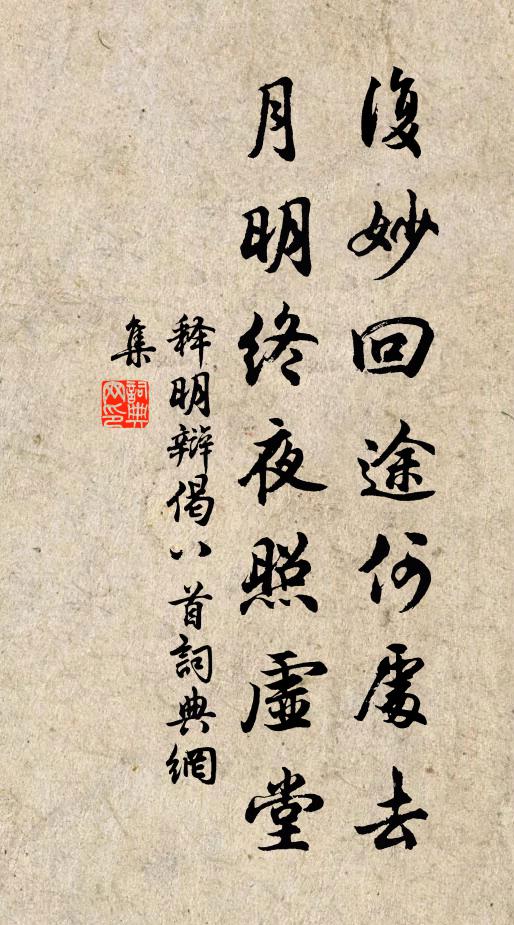 復妙回途何處去
月明終夜照虛堂
釋明辯偈八首詞典網
集
詞典網印